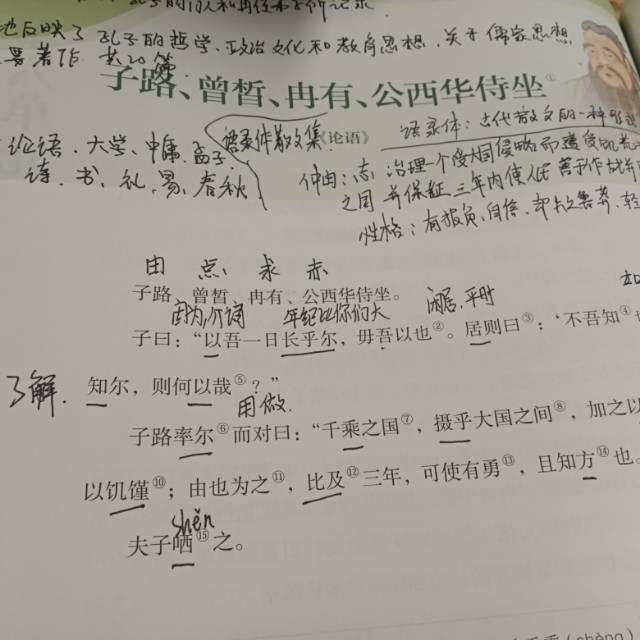 地反映了孔子的哲学、政治文化和教育思想,关于儒家思想
著作 共20篇.
子路、曾皙、冉有、公西华侍坐①
论语、大学、中庸、孟子
语录体散文集
《论语》
语录体:古代散文的一种形式
诗、书、礼、易、春秋
仲由:志:治理一个受大国侵略而遭受饥荒
之国 并保证三年内使人民善于作战并
性格:有抱负、自信、
由 点 求 赤
子路、曾皙、冉有、公西华侍坐。
因为,介词 年纪比你们大 闲居、平时
子曰:“以吾一日长乎尔,毋吾以也②。居则曰③:‘不吾知④也
了解.
知尔,则何以哉⑤?”
用做.
子路率尔⑥而对曰:“千乘之国⑦,摄乎大国之间⑧,加之以
以饥馑⑩;由也为之⑪,比及⑫三年,可使有勇⑬,且知方⑭也。
shěn
夫子哂⑮之。
乘(shèng)